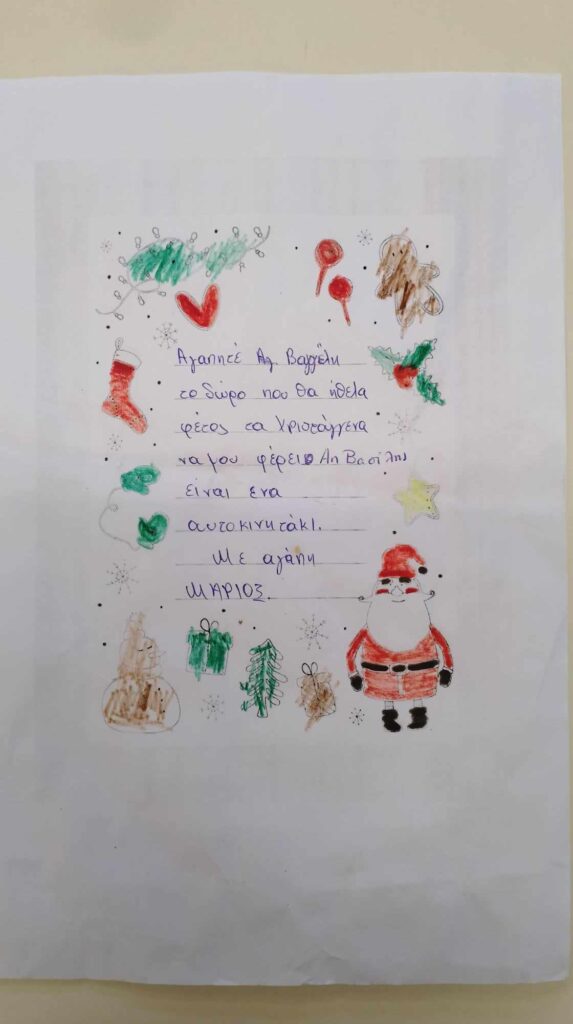 Αγαπητέ Αη Βαγγέλη
το δώρο που θα ήθελα
φέτος τα Χριστούγγενα
να μου φέρει ο Αη Βασίλης
είναι ενα
αυτοκινητάκι.
Με αγάπη
ΜΑΡΙΟΣ.